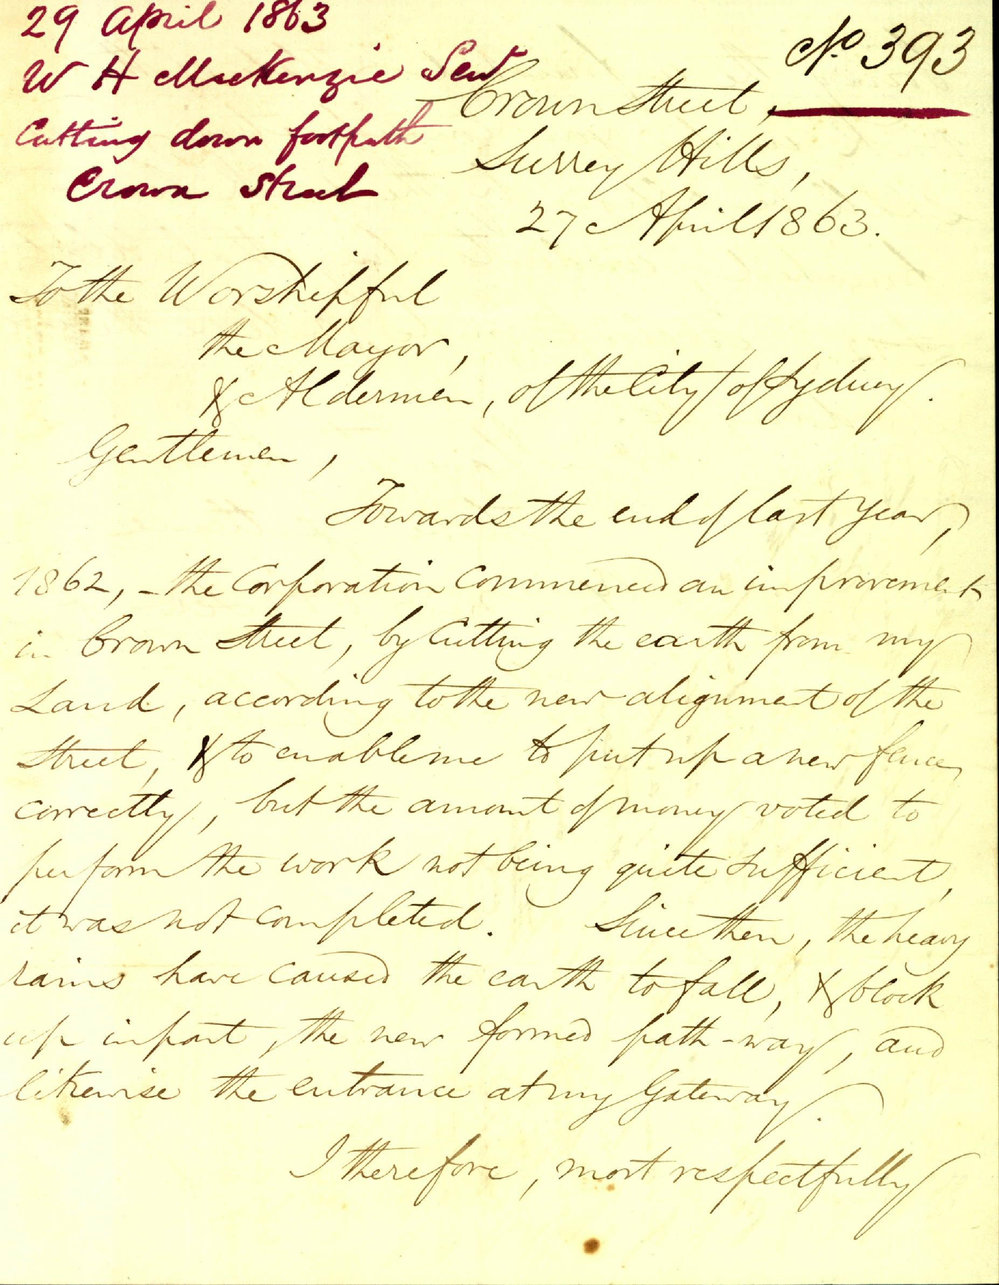 29 April 1863
W H MacKenzie Senr
Cutting down footpath
Crown Street
No. 393
Crown Street,
Surrey Hills,
27 April 1863.
To the Worshipful
the Mayor,
& Aldermen, of the City of Sydney.
Gentlemen,
Towards the end of last year,
1862, - the Corporation Commenced an improvement
in Crown Street, by Cutting the earth from my
Land, according to the new alignment of the
Street, & to enable me to put up a new fence
correctly, but the amount of money voted to
perform the work not being quite sufficient,
it was not completed. Since then, the heavy
rains have caused the earth to fall, & block
up in part, the new formed path-way, and
likewise the entrance at my Gateway.
I therefore, most respectfully